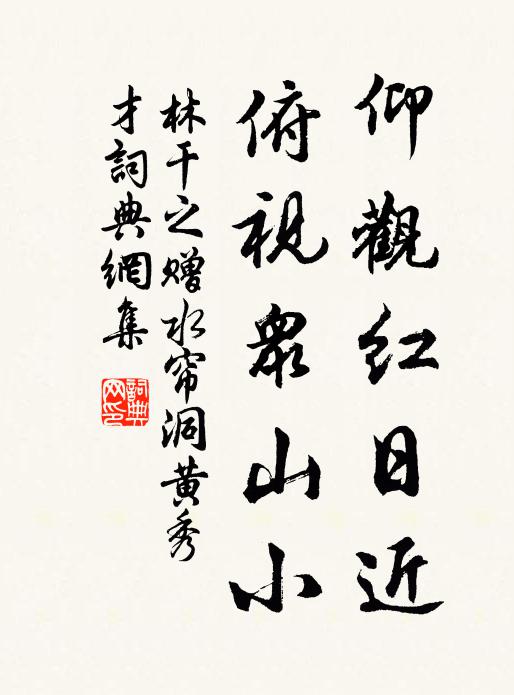 仰觀红日近
俯視衆山小
林干之赠水帘洞黄秀
才詞典網集
詞典
网印